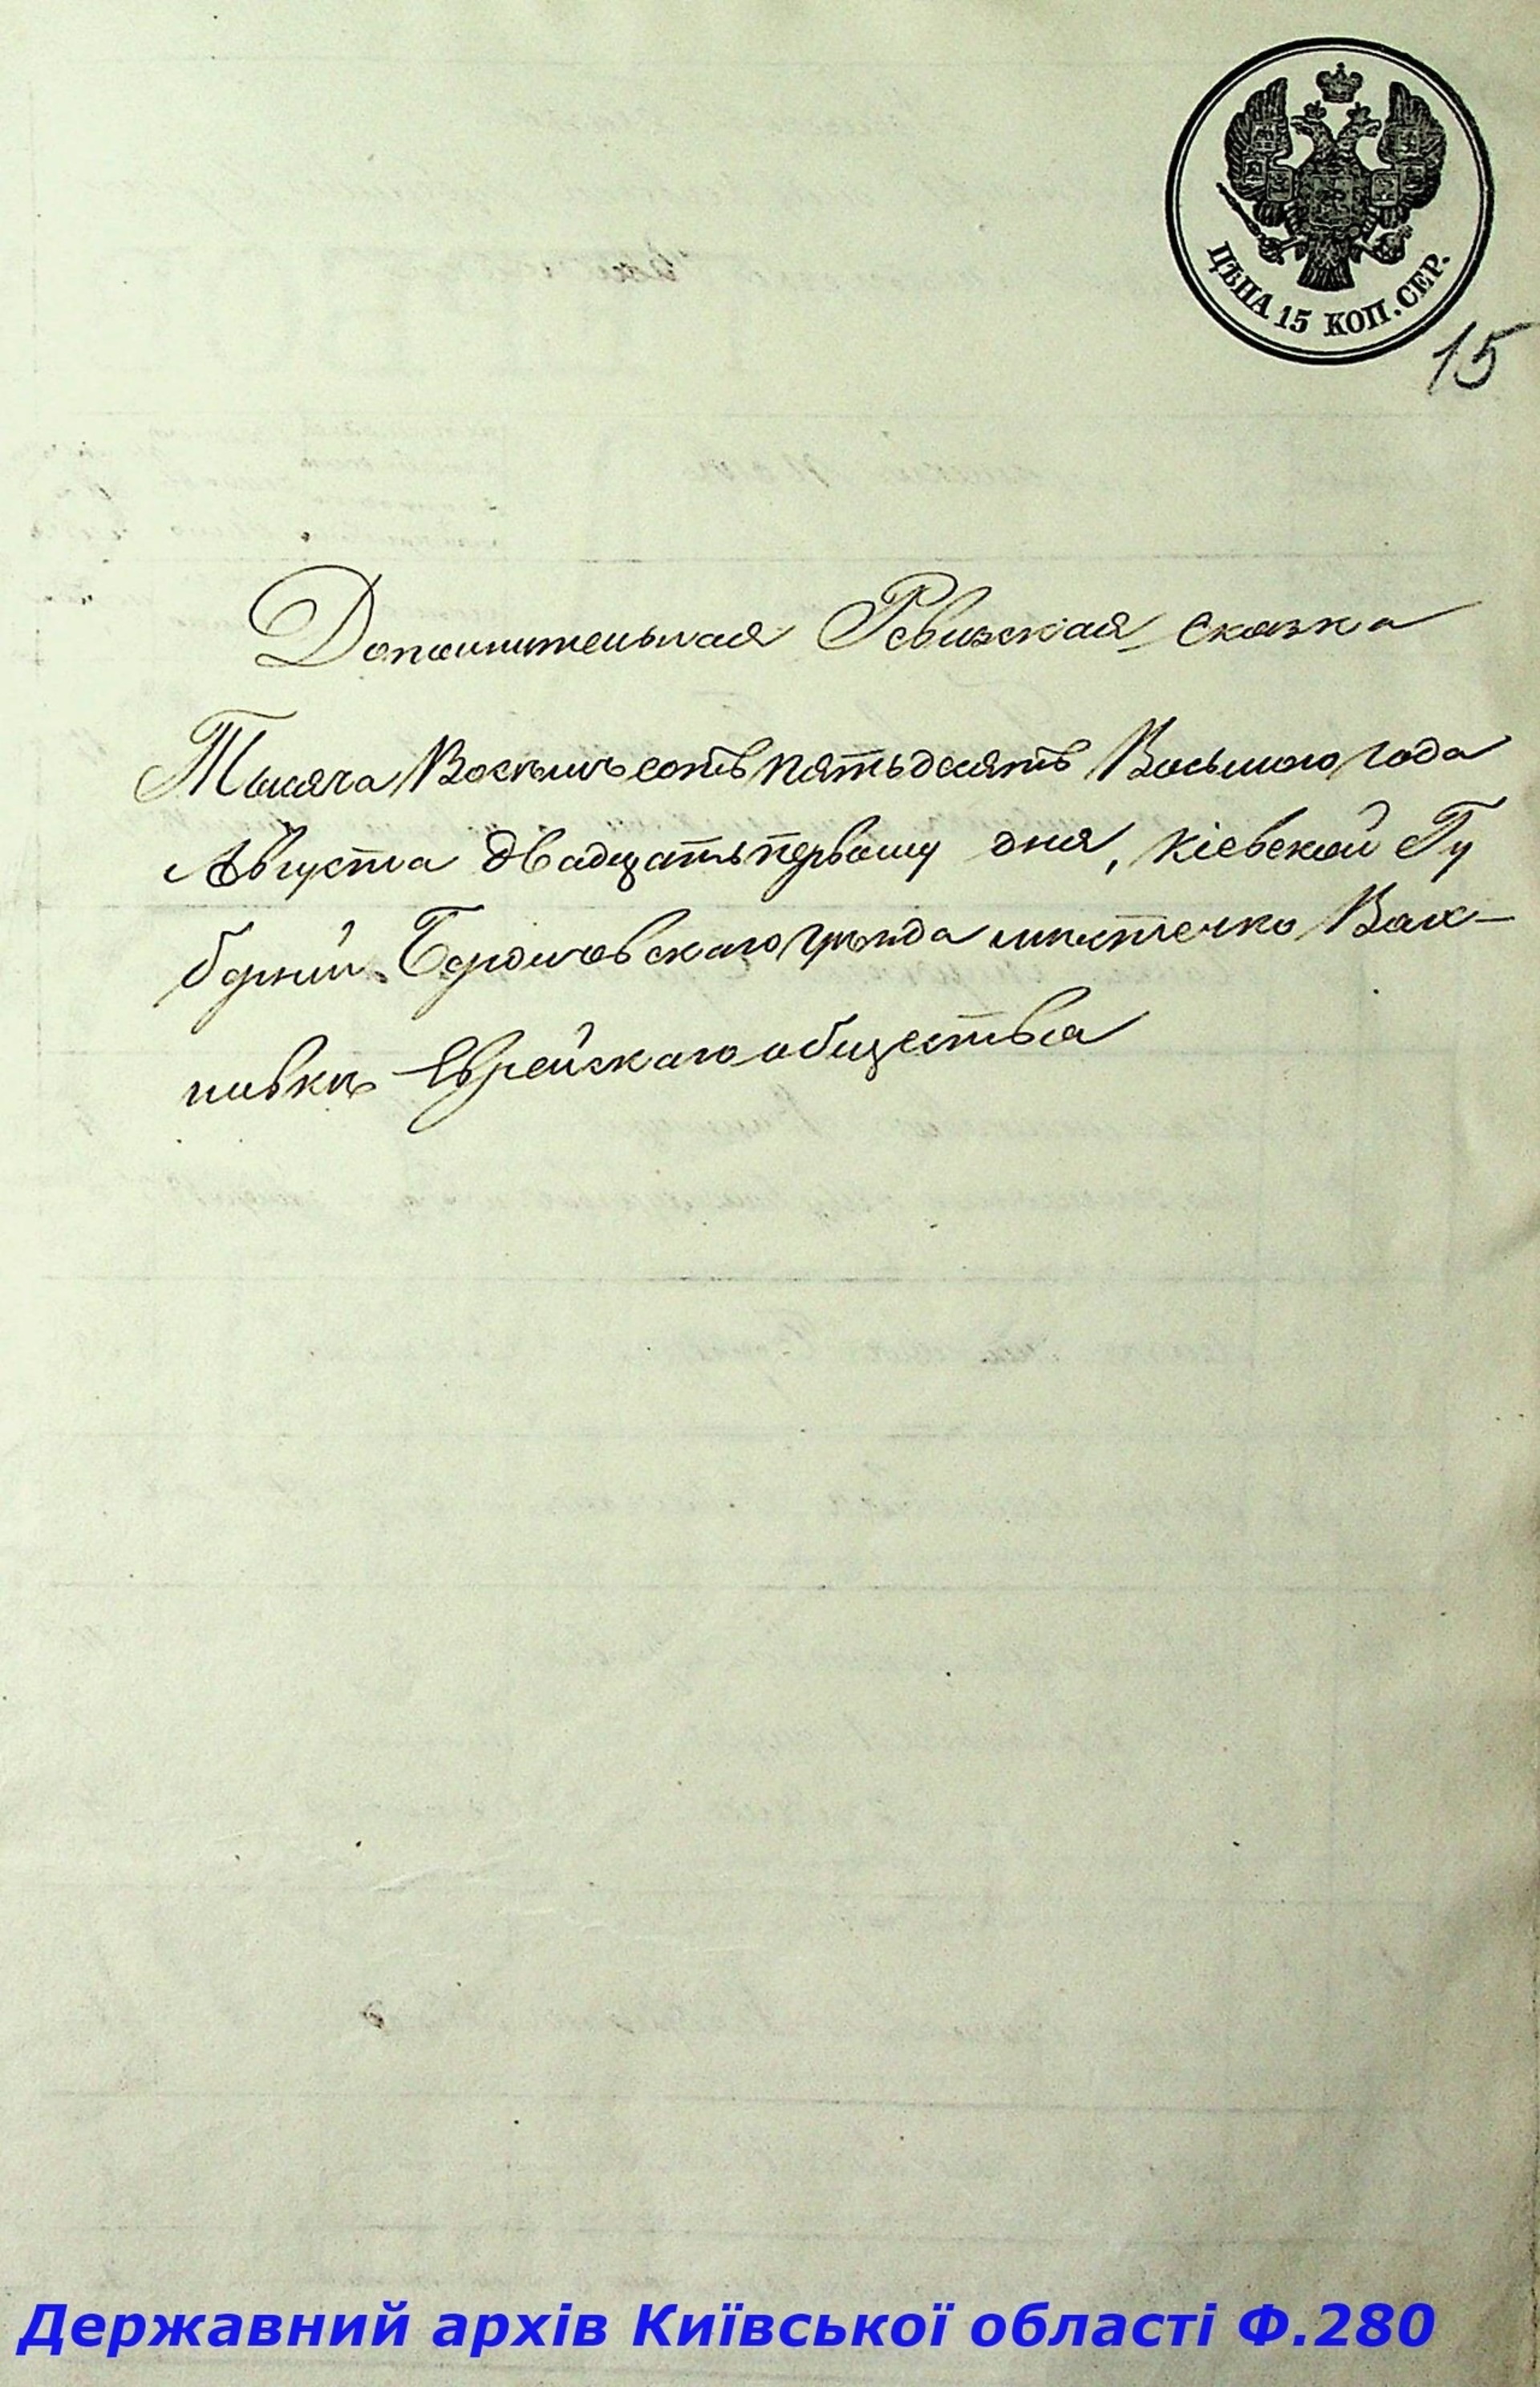 ЦѢНА 15 КОП. СЕР.
15
Дополнительная Ревизская сказка
Тысяча Восемьсотъ пятьдесятъ Восьмого года
Августа двадцатьпервому дня, Кіевской Гу
берніи Бердичовскаго уѣзда мѣстечко Вах-
новки Еврейскаго общества
Державний архів Київської області Ф.280